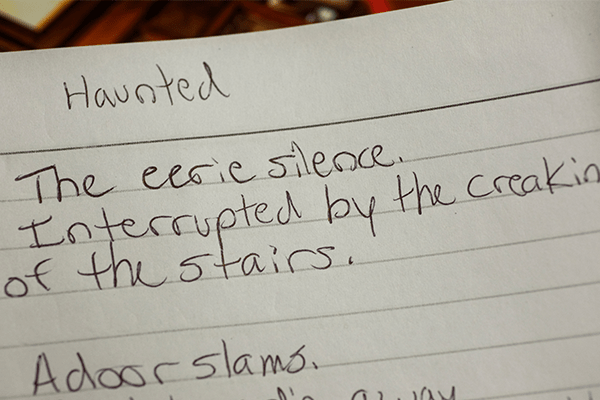 Haunted
The eerie silence.
Interrupted by the creakin
of the stairs.
A door slams.
away